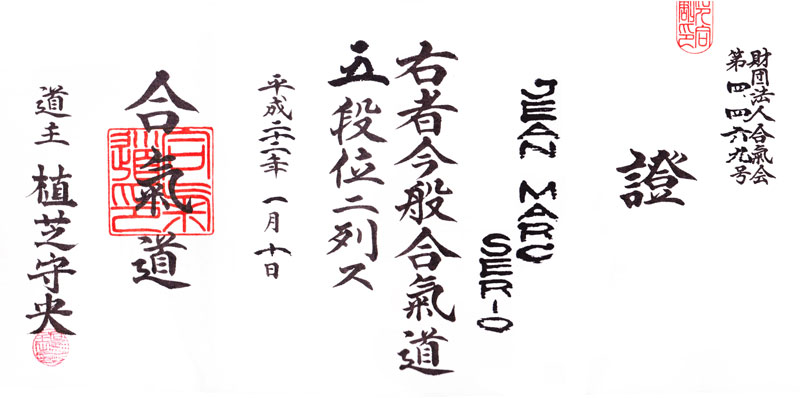 財団法人合氣会
第四、四六九号
證
JEAN MARC
SERIO
右者今般合氣道
五段位ニ列ス
平成二十二年 一月十日
合氣道
道主 植芝守央